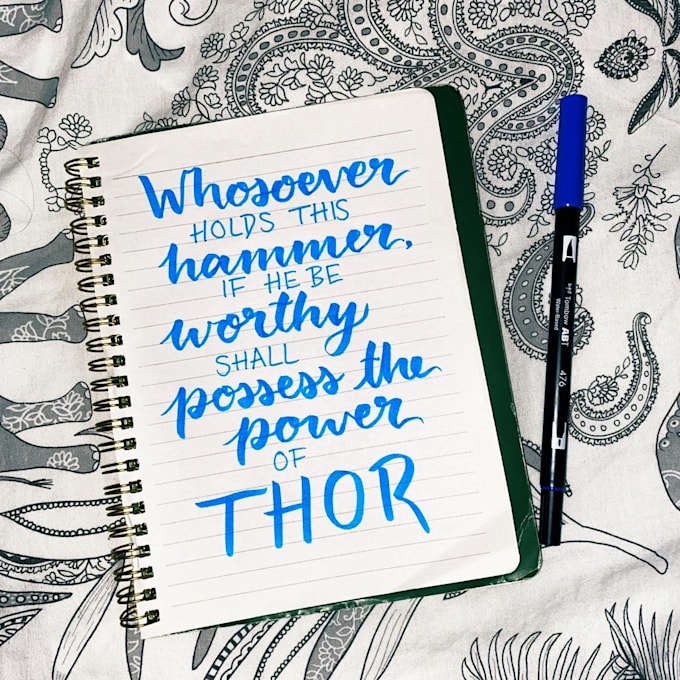 Whosoever
HOLDS THIS
hammer,
IF HE BE
worthy
SHALL
possess the
power
OF
THOR
Tombow ABT
Water-Based
476